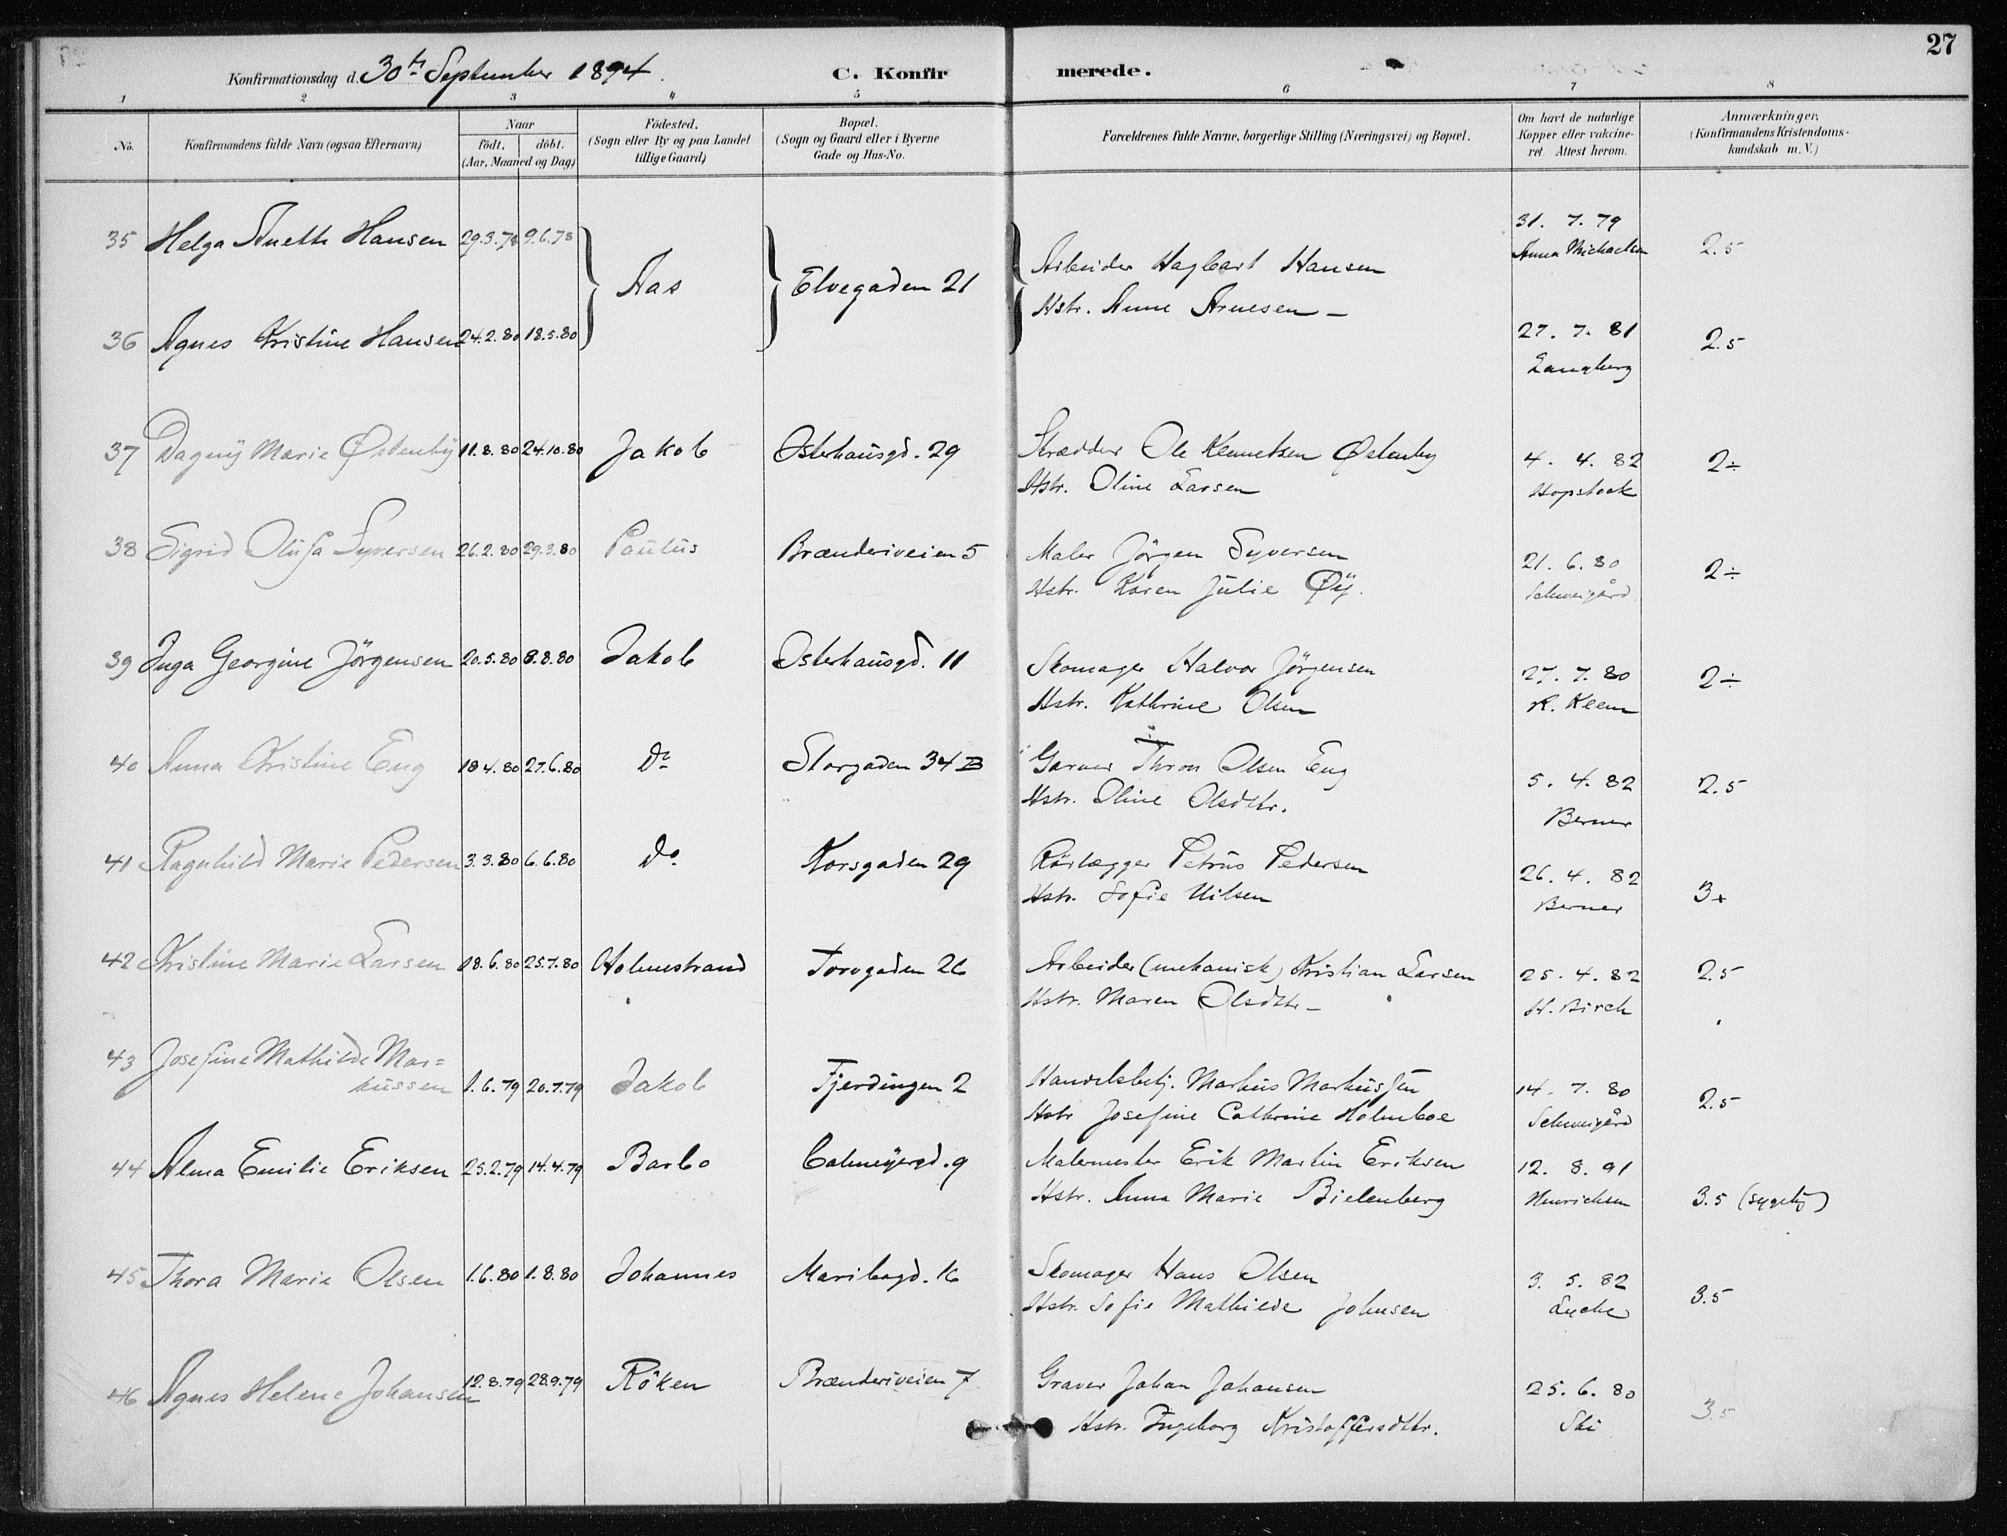 27
Konfirmationsdag d. 30th September 1894. C. Konfirmerede.
1 2 3 4 5 6 7 8
No. Konfirmandens fulde Navn (ogsaa Efternavn) Naar födt. döbt. (Aar, Maaned og Dag) Födested. (Sogn eller By og paa Landet tillige Gaard) Bopæl. (Sogn og Gaard eller i Byerne Gade og Hus-No. Forældrenes fulde Navne, borgerlige Stilling (Næringsvei) og Bopæl. Om havt de naturlige Kopper eller vaccineret. Attest herom. Anmærkninger. (Konfirmandens Kristendomskundskab m. V.)
35 Helga Anette Hansen 29.3.78 9.6.78 Aas Elvegaden 21 Arbeider Hagbart Hansen 31. 7. 79 2.5
Hstr. Anne Arnesen Anna Michaelsen
36 Agnes Kristine Hansen 24.2.80 18.5.80 27. 7. 81 2.5
Langberg
37 Dagny Marie Østenby 11.8.80 24.10.80 Jakob Osterhausgd. 29 Skrædder Ole Kennetsen Østenby 4. 4. 82 2÷
Hstr. Oline Larsen Hopstock
38 Sigrid Olufa Syversen 26.2.80 29.3.80 Paulus Brænderiveien 5 Maler Jörgen Syversen 21. 6. 80 2÷
Hstr. Karen Julie Øy. Schweigård
39 Inga Georgine Jörgensen 20.5.80 8.8.80 Jakob Osterhausgd. 11 Skomager Halvor Jörgensen 27. 7. 80 2÷
Hstr. Kathrine Olsen K. Keem
40 Anna Kristine Eng 18 4.80 27.6.80 Do Storgaden 34 B Garver Thron Olsen Eng 5. 4. 82 2.5
Hstr. Oline Olsdtr. Berner
41 Ragnhild Marie Pedersen 3.3.80 6.6.80 Do Korsgaden 29 Rörlægger Petrus Pedersen 26. 4. 82 3+
Hstr. Sofie Nilsen Berner
42 Kristine Marie Larsen 18.6.80 25.7.80 Holmestrand Torvgaden 26 Arbeider (mekanisk) Kristian Larsen 25. 4. 82 2.5
Hstr. Maren Olsdtr H. Birch
43 Josefine Mathilde Markussen 1.6.79 20.7.79 Jakob Fjerdingen 2 Handelsbetj. Markus Markussen 14. 7. 80 2.5
Hstr Josefine Cathrine Holmboe Schweigård
44 Alma Emilie Eriksen 25.2.79 14.4.79 Barbo Calmeyergd. 9 Malermester Erik Martin Eriksen 12. 8. 91
Hstr. Anna Marie Bielenberg Henrichsen 3.5
45 Thora Marie Olsen 1.6.80 1.8.80 Johannes Maribogd. 16 Skomager Hans Olsen 3. 5. 82 3.5
Hstr. Sofie Mathilde Johnsen Lyche
46 Agnes Helene Johansen 12.8.79 28.9.79 Röken Brænderiveien 7 Graver Johan Johansen 25. 6. 80 3.5
Hstr. Ingeborg Kristoffersdtr. Ski